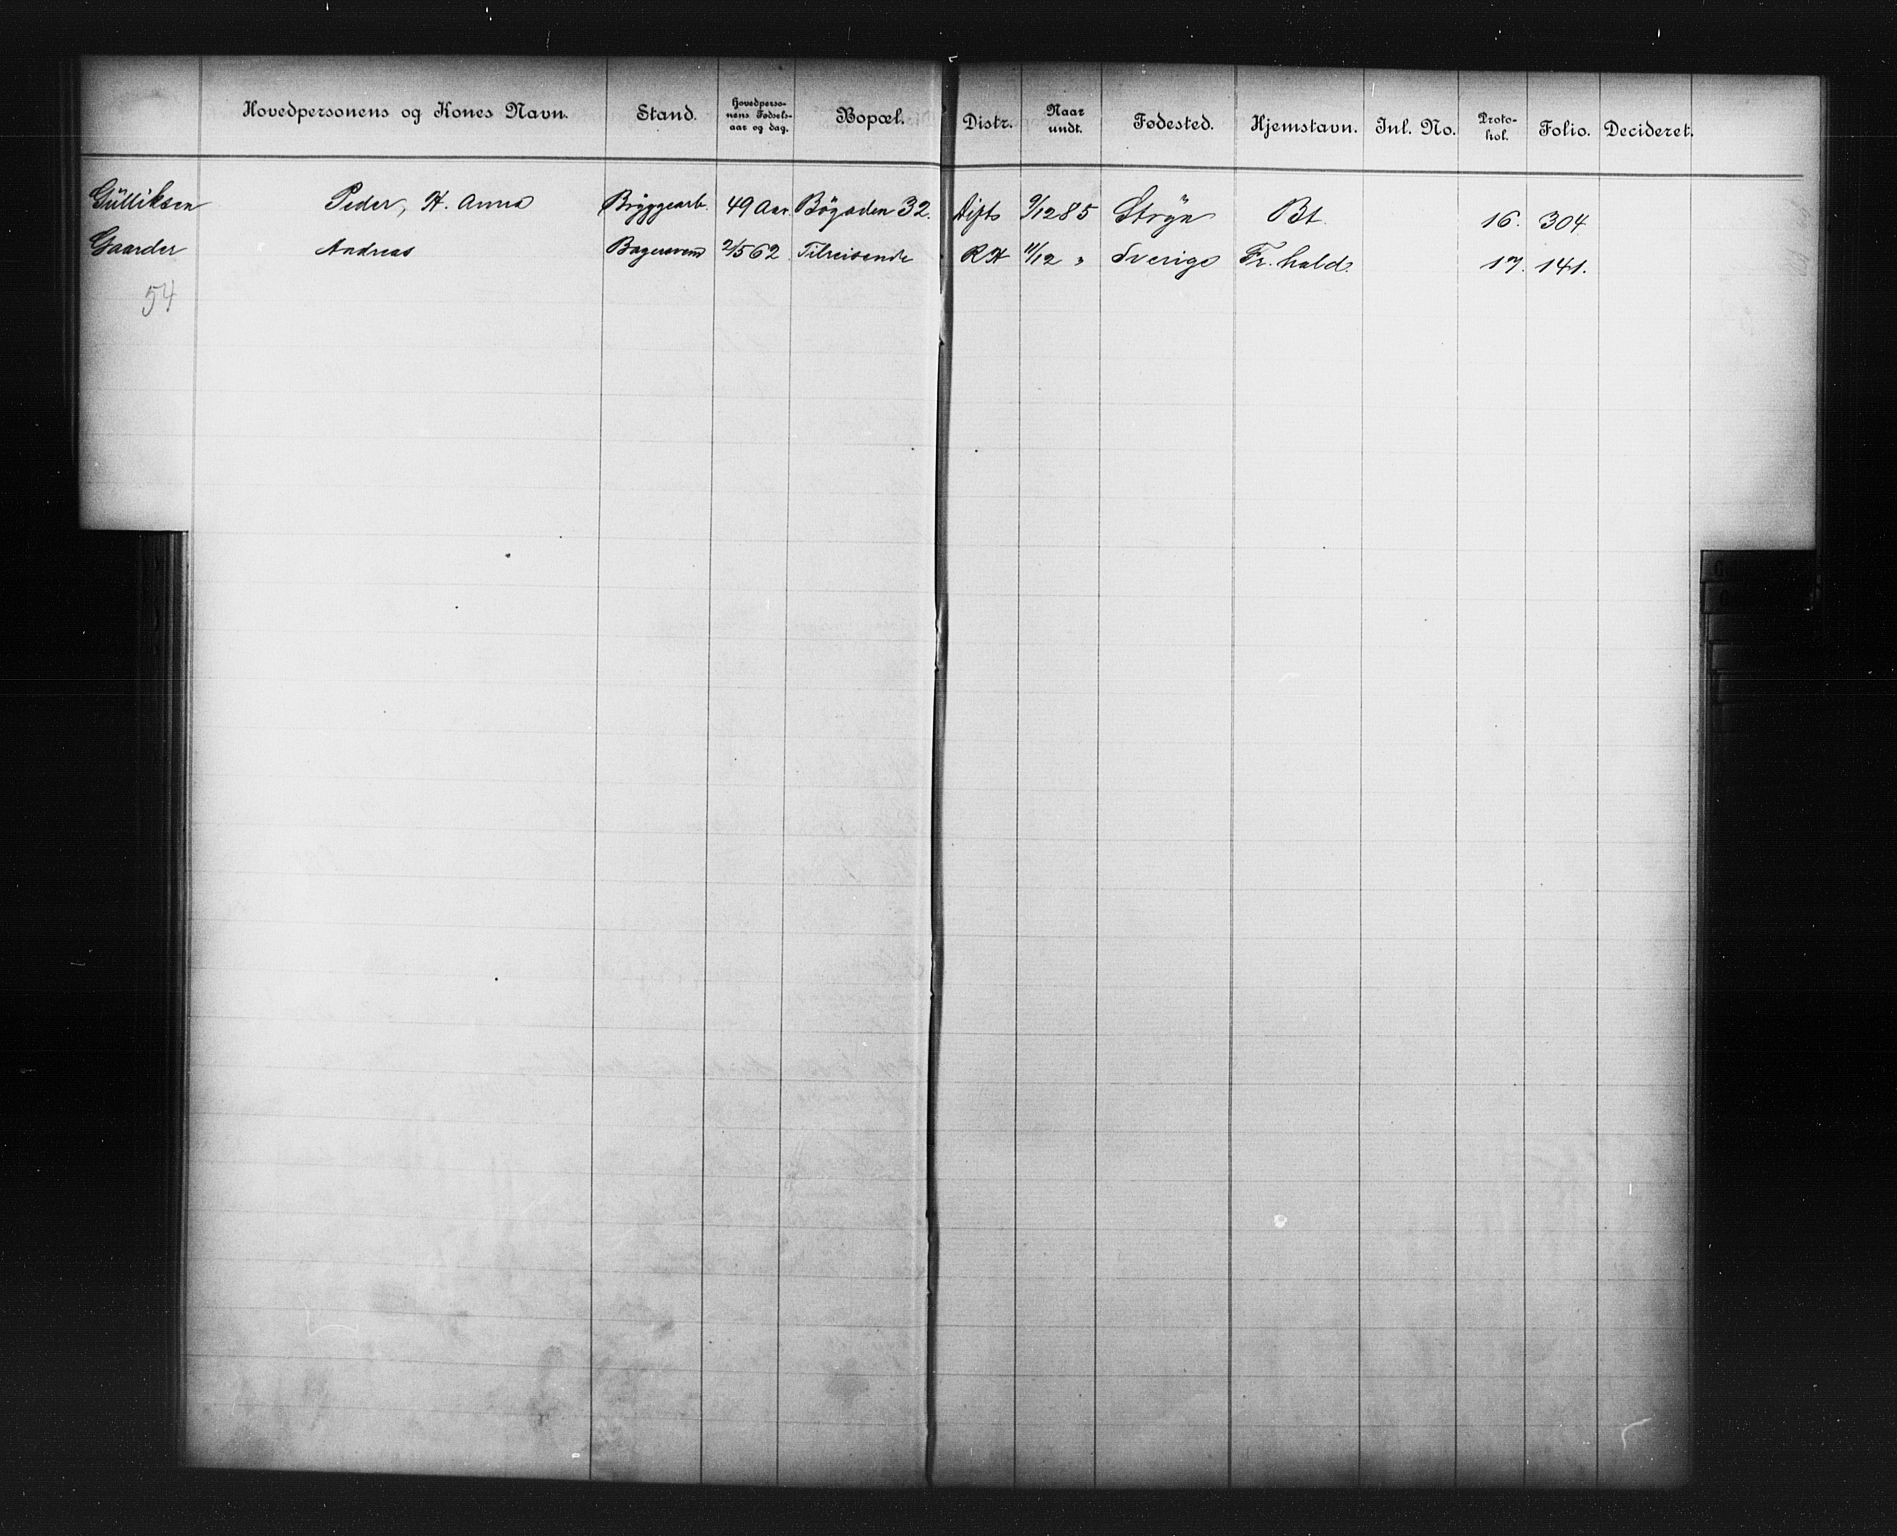 Hovedpersonens og Kones Navn. Stand. Hovedperso-nens Fødsels-aar og dag. Bopæl. Distr. Naar undt. Fødested. Hjemstavn. Jnl. No. Proto-kol. Folio. Decideret.
Gülliksen Peder, H. Anna Bryggearb. 49 Aar Bøgaden 32. 9/12 85 Stryn Bt. 16. 304
Gaarder Andreas Bagersvend 2/5 62 Tilreisende RH 11/12 " Sverige Fr.hald. 17. 141.
54